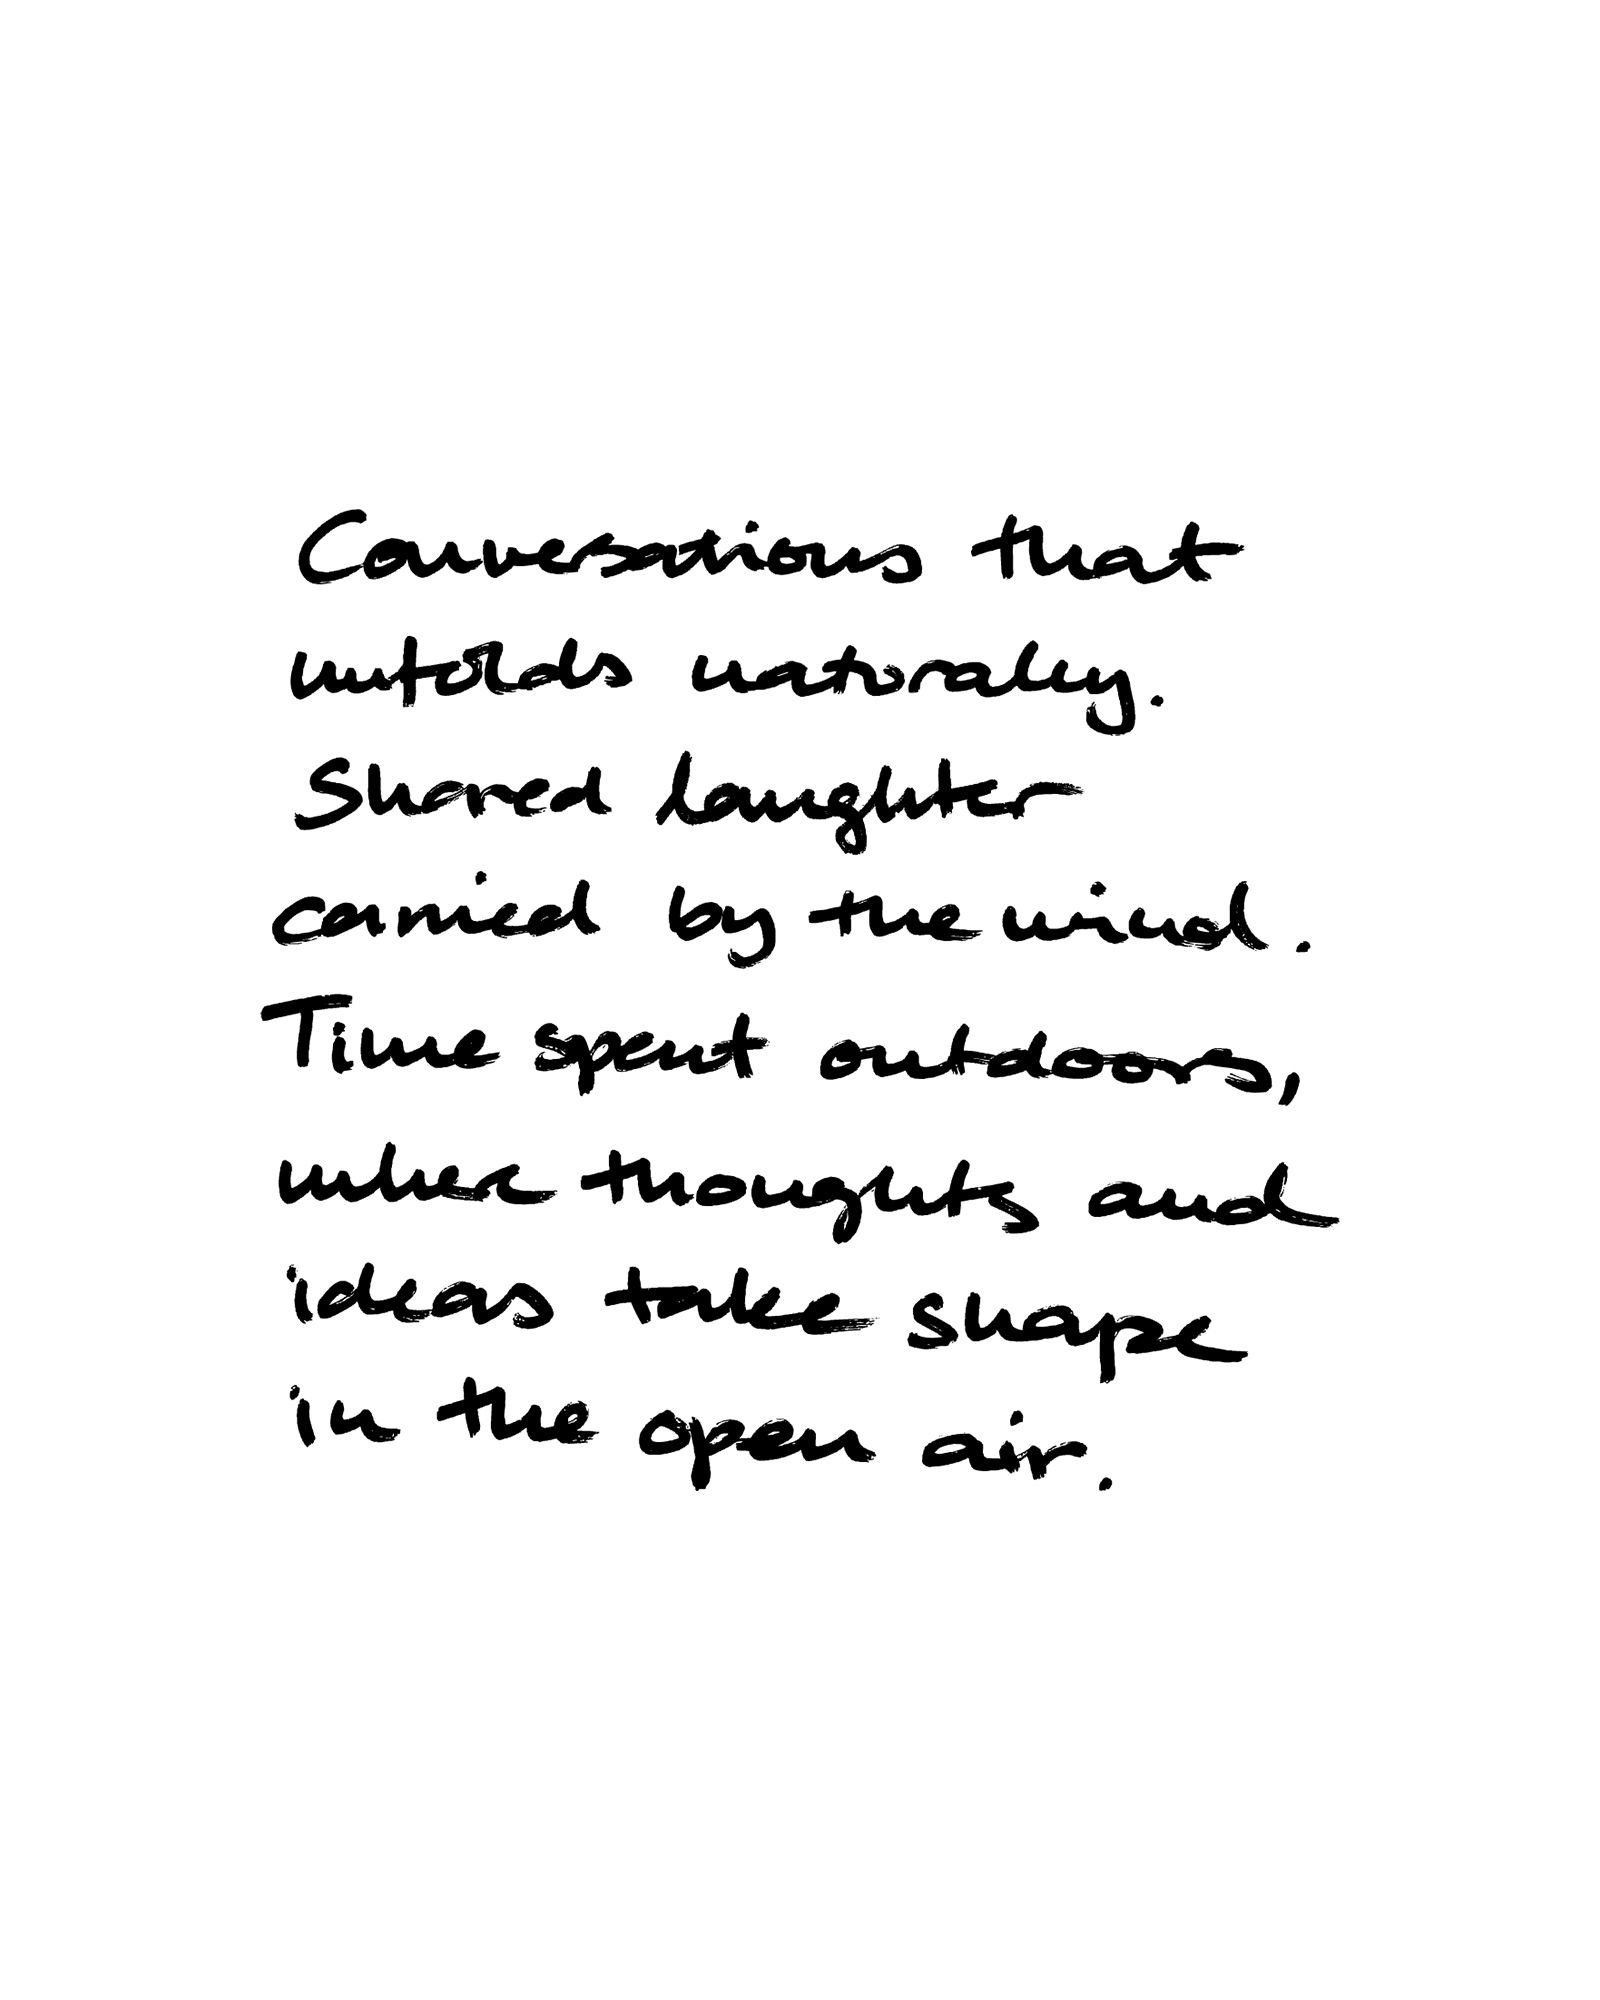 Conversations that
unfolds naturally.
Shared laughter
carried by the wind.
Time spent outdoors,
where thoughts and
ideas take shape
in the open air.